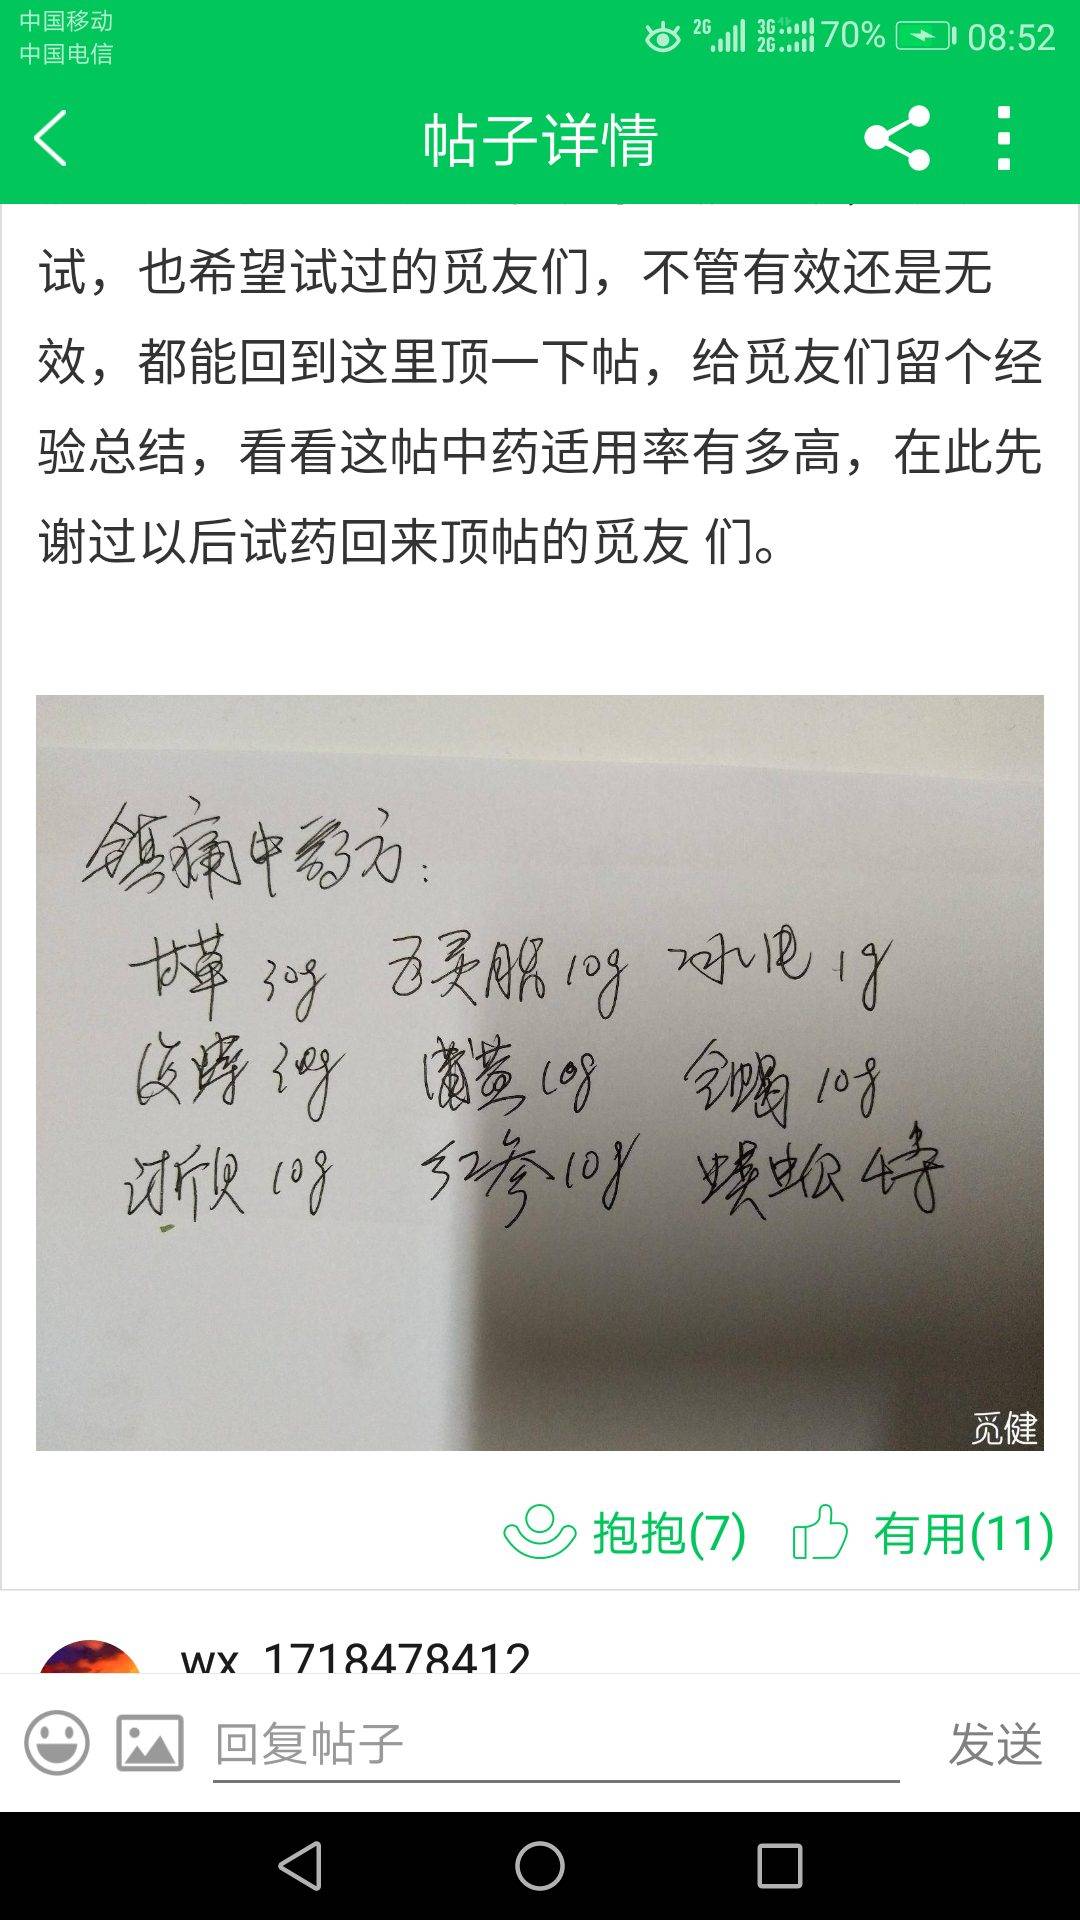 中国移动
中国电信
2G 3G 2G 70% 08:52
帖子详情
试，也希望试过的觅友们，不管有效还是无
效，都能回到这里顶一下帖，给觅友们留个经
验总结，看看这帖中药适用率有多高，在此先
谢过以后试药回来顶帖的觅友 们。
镇痛中药方：
甘草 30g 五灵脂 10g 冰片 1g
30g 蒲黄 10g 全蝎 10g
浙贝 10g 红参 10g 蜈蚣 4
觅健
抱抱(7) 有用(11)
wx_1718478412
回复帖子 发送